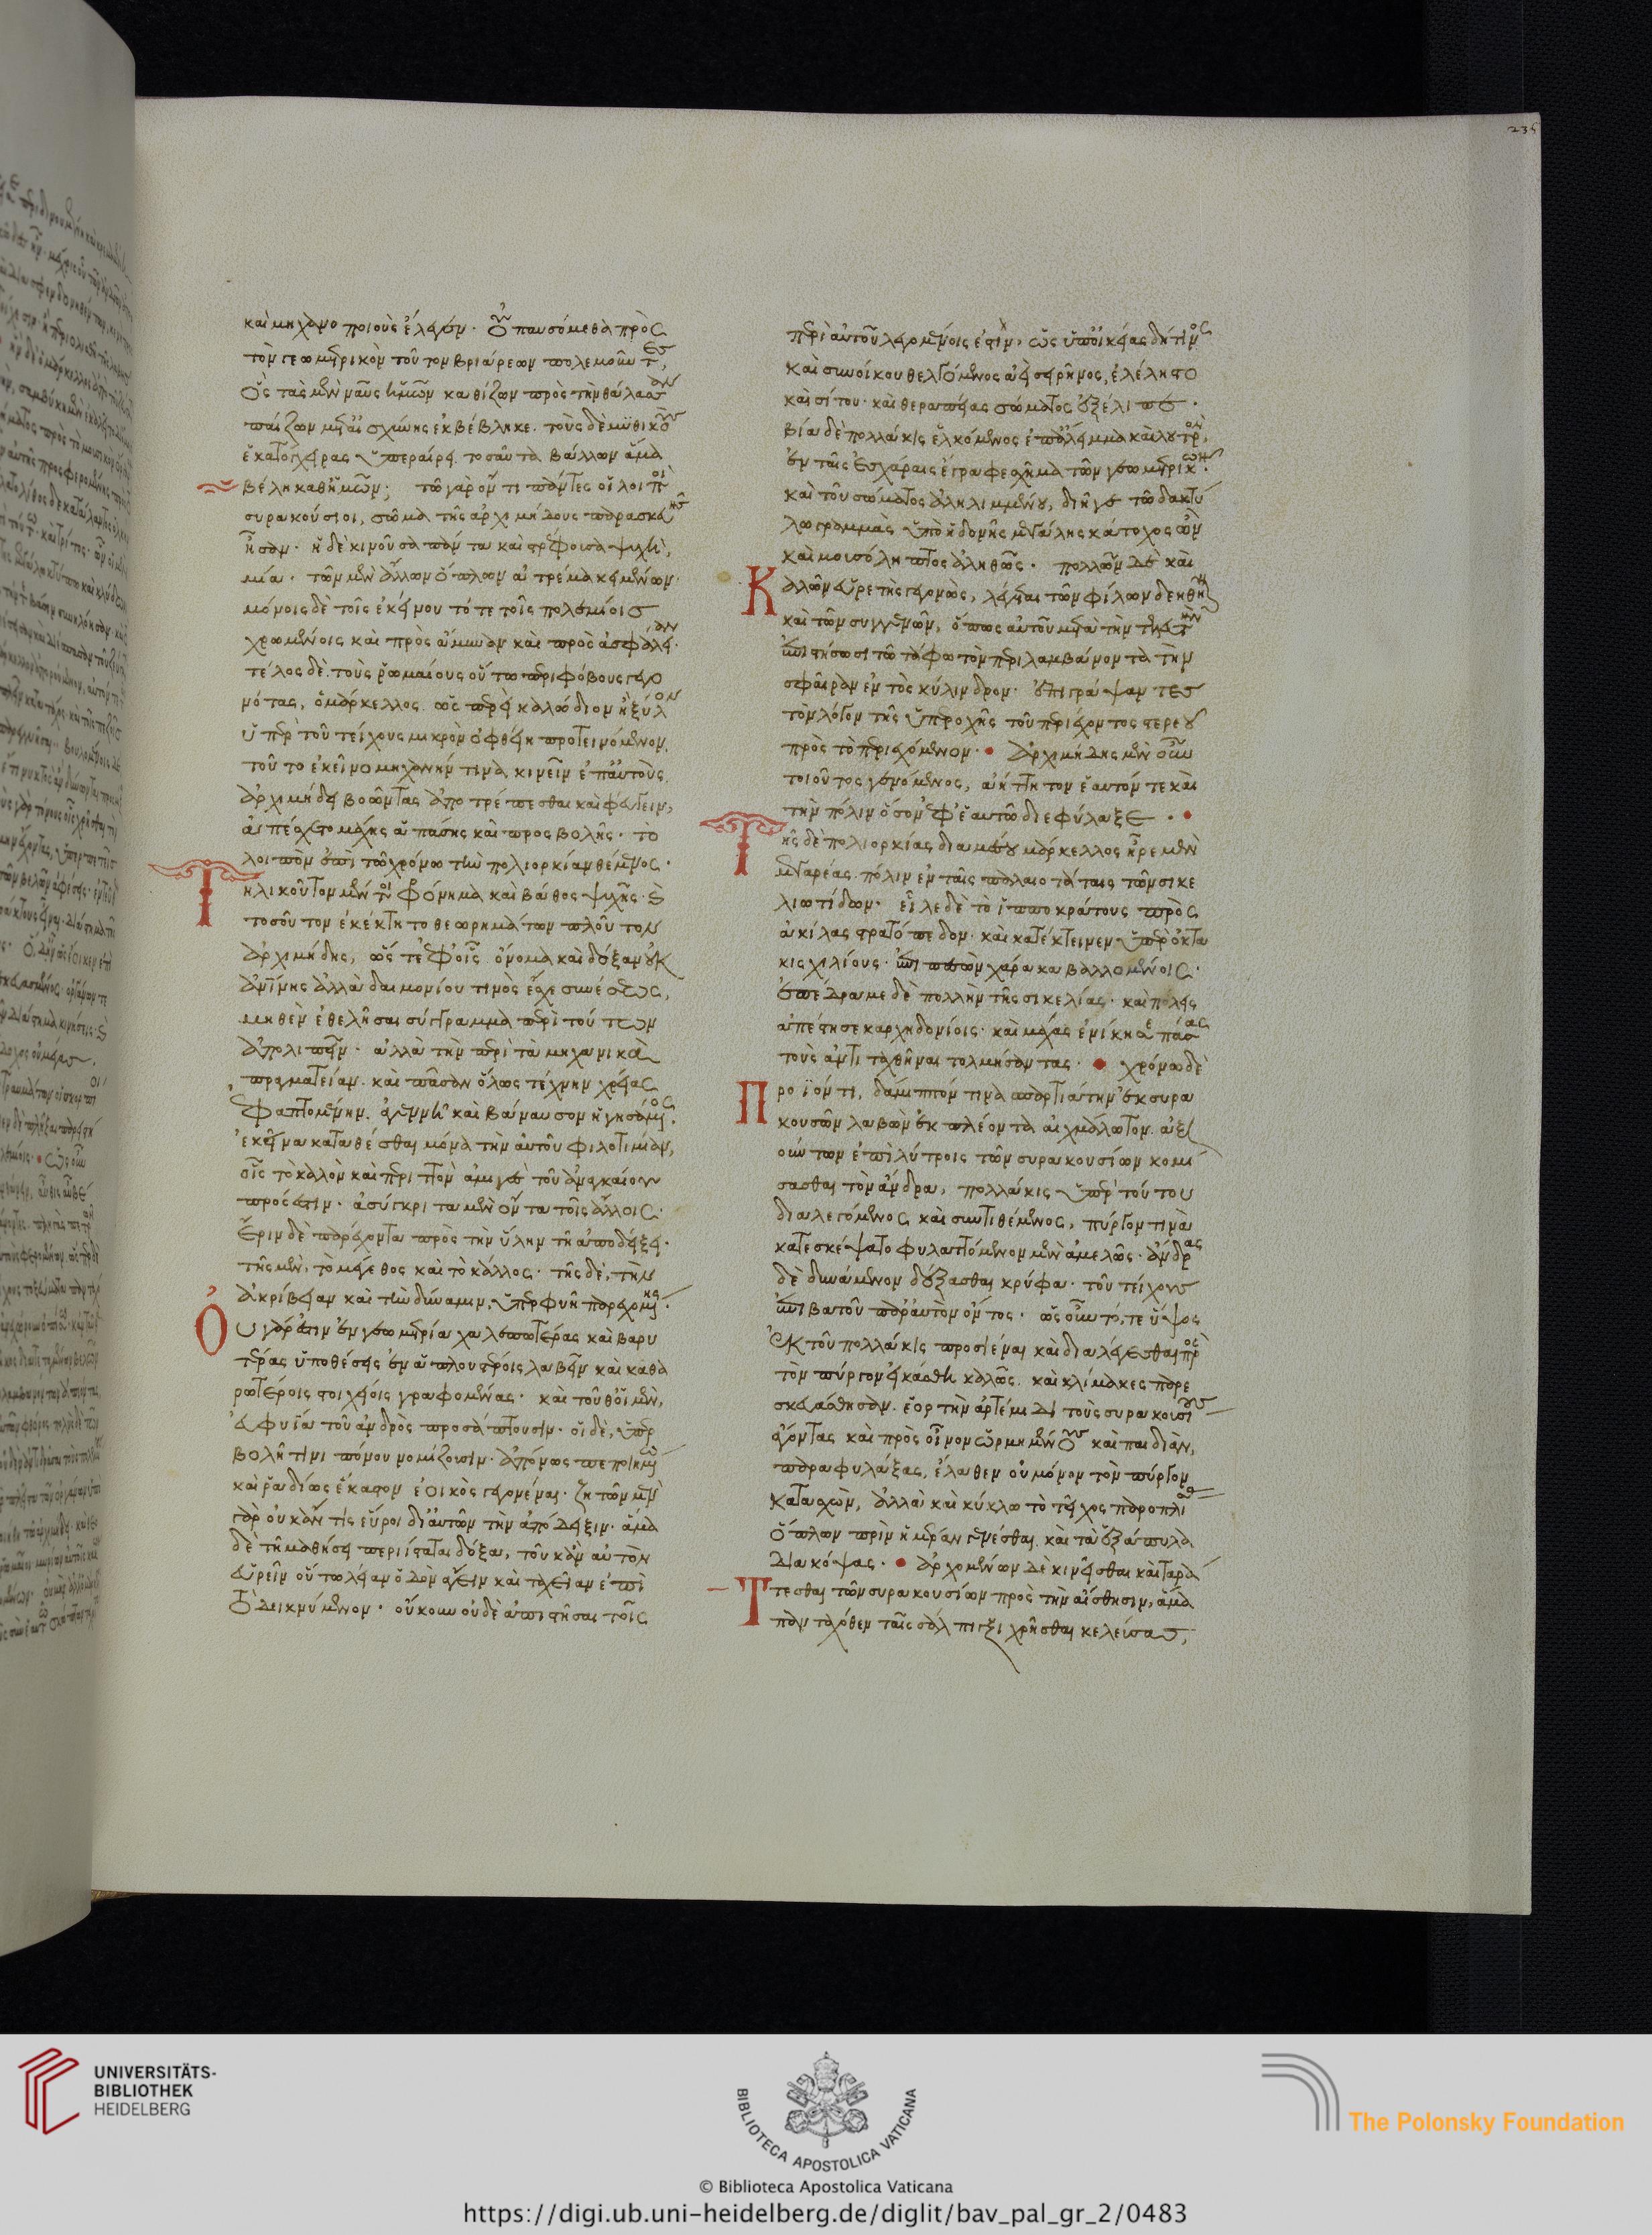 καὶ μηχανοποιοὺς ἔλεγεν· οὐ παυσόμεθα πρὸς
τὸν γεωμετρικὸν τοῦτον βριάρεων πολεμοῦντες,
ὃς τὰς μὲν ναῦς ἡμῶν καθίζων πρὸς τὴν θάλασσαν
παίζων μετ' αἰσχύνης ἐκβέβληκε. τοὺς δὲ μυθικοὺς
ἑκατόγχειρας ὑπεραίρει τοσαῦτα βάλλων ἅμα
βέλη καθ' ἡμῶν; τῷ γὰρ ὄντι πάντες οἱ λοιποὶ
συρακούσιοι, σῶμα τῆς ἀρχιμήδους παρασκευῆς
ἦσαν· ἡ δὲ κινοῦσα πάντα καὶ στρέφουσα ψυχὴ,
μία· τῶν μὲν ἄλλων ὅπλων ἀτρέμα κειμένων·
μόνοις δὲ τοῖς ἐκείνου τότε τοῖς πολεμίοις
χρωμένοις καὶ πρὸς ἄμυναν καὶ πρὸς ἀσφάλειαν·
τέλος δὲ τοὺς ῥωμαίους οὕτω περιφόβους γεγο
νότας, ὁ μάρκελλος ὡς εἰ καλώδιον ἢ ξύλον
ὑπὲρ τοῦ τείχους μικρὸν ὀφθείη προτεινόμενον,
τοῦτο ἐκεῖνο μηχανήν τινα κινεῖν ἐπ' αὐτοὺς
ἀρχιμήδη βοῶντας ἀποτρέπεσθαι καὶ φεύγειν,
ἀπέσχετο μάχης ἁπάσης καὶ προσβολῆς· τὸ
λοιπὸν ἐπὶ τῷ χρόνῳ τὴν πολιορκίαν θέμενος·
Τηλικοῦτον μέντοι φρόνημα καὶ βάθος ψυχῆς· καὶ
τοσοῦτον ἐκέκτητο θεωρημάτων πλοῦτον
ἀρχιμήδης, ὥστ' ἐφ' οἷς ὄνομα καὶ δόξαν οὐκ
ἀνθρωπίνης ἀλλὰ δαιμονίου τινὸς ἔσχε συνέσεως,
μηθὲν ἐθελῆσαι σύγγραμμα περὶ τούτων
ἀπολιπεῖν· ἀλλὰ τὴν περὶ τὰ μηχανικὰ
πραγματείαν. καὶ πᾶσαν ὅλως τέχνην χρείας
ἐφαπτομένην. ἀγεννῆ καὶ βάναυσον ἡγησάμενος,
ἐκεῖνα καταθέσθαι μόνα τὴν αὐτοῦ φιλοτιμίαν,
οἷς τὸ καλὸν καὶ περιττὸν ἀμιγὲς τοῦ ἀναγκαίου
πρόσεστιν· ἀσύγκριτα μὲν ὄντα τοῖς ἄλλοις·
ἔριν δὲ παρέχοντα πρὸς τὴν ὕλην τῇ ἀποδείξει·
τῆς μὲν, τὸ μέγεθος καὶ τὸ κάλλος· τῆς δὲ, τὴν
ἀκρίβειαν καὶ τὴν δύναμιν, ὑπερφυῆ παρεχομένης·
Οὐ γάρ ἐστιν ἐν γεωμετρίᾳ χαλεπωτέρας καὶ βαρυ
τέρας ὑποθέσεις ἐν ἁπλουστέροις λαβεῖν καὶ καθα
ρωτέροις στοιχείοις γραφομένας· καὶ τοῦθ' οἱ μὲν,
εὐφυΐᾳ τοῦ ἀνδρὸς προσάπτουσιν· οἱ δὲ, ὑπερ
βολῇ τινι πόνου νομίζουσιν· ἀπόνως πεποιημένῳ
καὶ ῥᾳδίως ἕκαστον ἐοικὸς γεγονέναι· ζητῶν μὲν
γὰρ οὐκ ἄν τις εὕροι δι' αὑτῶν τὴν ἀπόδειξιν· ἅμα
δὲ τῇ μαθήσει περιίσταται δόξα, τοῦ κἂν αὐτὸν
εὑρεῖν οὕτω λείαν ὁδὸν ἄγειν καὶ ταχεῖαν ἐπὶ
τὸ δεικνύμενον· οὔκουν οὐδὲ ἀπιστῆσαι τοῖς
περὶ αὐτοῦ λεγομένοις ἐστὶν, ὡς ὑπ' οἰκείας δή τινος
καὶ συνοίκου θελγόμενος ἀεὶ σειρῆνος, ἐλέληστο
καὶ σίτου· καὶ θεραπείας σώματος ἐξέλιπε·
βίᾳ δὲ πολλάκις ἑλκόμενος ἐπ' ἄλειμμα καὶ λουτρὸν,
ἐν ταῖς ἐσχάραις ἔγραφε σχῆμα τῶν γεωμετρικῶν·
καὶ τοῦ σώματος ἀληλιμμένου, διῆγε τῷ δακτύ
λῳ γραμμὰς ὑπὸ ἡδονῆς μεγάλης κάτοχος ὢν
καὶ μουσόληπτος ἀληθῶς· πολλῶν δὲ καὶ
Καλῶν εὑρετὴς γεγονὼς, λέγεται τῶν φίλων δεηθῆναι
καὶ τῶν συγγενῶν, ὅπως αὐτοῦ μετὰ τὴν τελευτὴν
ἐπιστήσωσι τῷ τάφῳ τὸν περιλαμβάνοντα τὴν
σφαῖραν ἐντὸς κύλινδρον· ἐπιγράψαντες
τὸν λόγον τῆς ὑπεροχῆς τοῦ περιέχοντος στερεοῦ
πρὸς τὸ περιεχόμενον· ἀρχιμήδης μὲν οὖν
τοιοῦτος γενόμενος, ἀήττητον ἑαυτόν τε καὶ
τὴν πόλιν ὅσον ἐφ' ἑαυτῷ διεφύλαξε·
Τῆς δὲ πολιορκίας διὰ μέσου μάρκελλος εἷλε μὲν
μεγαρέας πόλιν ἐν ταῖς παλαιοτάταις τῶν σικε
λιωτίδων· εἷλε δὲ τὸ ἱπποκράτους πρὸς
ἀκίλας στρατόπεδον· καὶ κατέκτεινεν ὑπὲρ ὀκτα
κισχιλίους· ἐπιπεσὼν χάρακα βαλλομένοις·
ἐπέδραμε δὲ πολλὴν τῆς σικελίας· καὶ πόλεις
ἀπέστησε καρχηδονίοις· καὶ μάχας ἐνίκησε πάσας
τοὺς ἀντιταχθῆναι τολμήσαντας· χρόνῳ δὲ
Προϊόντι, δάμιππόν τινα σπαρτιάτην ἐκ συρα
κουσῶν λαβὼν ἐκπλέοντα αἰχμάλωτον. ἀξι
ούντων ἐπὶ λύτροις τῶν συρακουσίων κομί
σασθαι τὸν ἄνδρα, πολλάκις ὑπὲρ τούτου
διαλεγόμενος καὶ συντιθέμενος, πύργον τινὰ
κατεσκέψατο φυλαττόμενον μὲν ἀμελῶς· ἄνδρας
δὲ δυνάμενον δέξασθαι κρύφα· τοῦ τείχους
ἐπιβατοῦ παρ' αὐτὸν ὄντος· ὡς οὖν τό, τε ὕψος
ἐκ τοῦ πολλάκις προσιέναι καὶ διαλέγεσθαι πρὸς
τὸν πύργον εἰκάσθη καλῶς. καὶ κλίμακες παρε
σκευάσθησαν. ἑορτὴν ἀρτέμιδι τοὺς συρακουσίους
ἄγοντας καὶ πρὸς οἶνον ὡρμημένους καὶ παιδιὰν,
παραφυλάξας, ἔλαθεν οὐ μόνον τὸν πύργον
κατασχὼν, ἀλλὰ καὶ κύκλῳ τὸ τεῖχος παρεμπλήσας
ὅπλων πρὶν ἡμέραν γενέσθαι. καὶ τὰ ἑξάπυλα
διακόψας· ἀρχομένων δὲ κινεῖσθαι καὶ ταρά
Ττεσθαι τῶν συρακουσίων πρὸς τὴν αἴσθησιν, ἅμα
πανταχόθεν ταῖς σάλπιγξι χρῆσθαι κελεύσας,
235
UNIVERSITÄTS-
BIBLIOTHEK
HEIDELBERG
BIBLIOTECA APOSTOLICA VATICANA
© Biblioteca Apostolica Vaticana
The Polonsky Foundation
https://digi.ub.uni-heidelberg.de/diglit/bav_pal_gr_2/0483